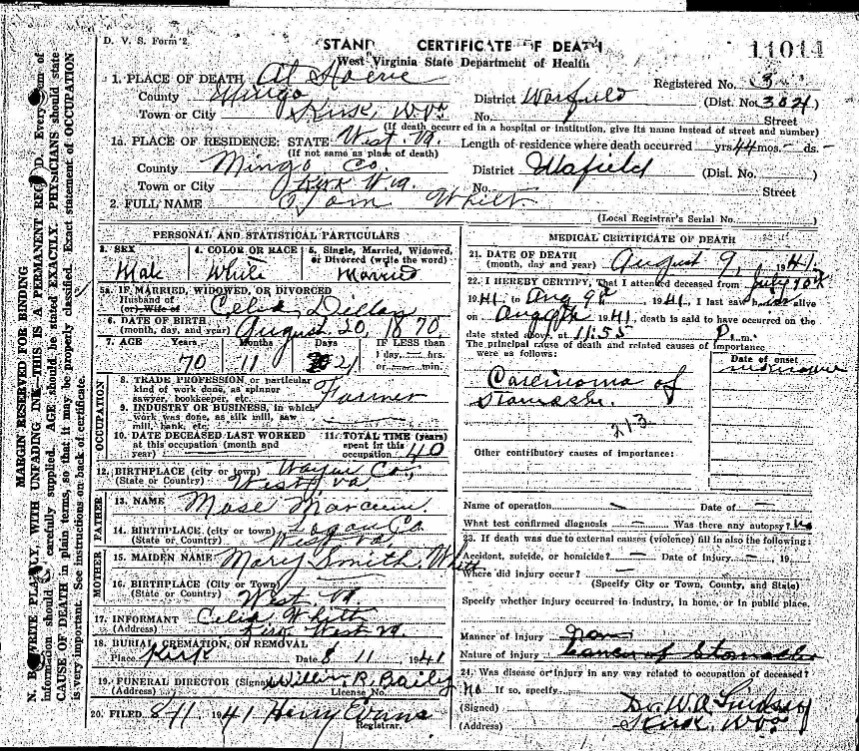 D. V. S. Form 2
STAND CERTIFICATE OF DEATH
11014
West Virginia State Department of Health
1. PLACE OF DEATH At Home
Registered No. 3
County Mingo District Warfield (Dist. No. 3021)
Town or City Kirk, W.Va No. Street
(If death occurred in a hospital or institution, give its name instead of street and number)
1a. PLACE OF RESIDENCE: STATE West. Va. Length of residence where death occurred yrs 44 mos. - ds. -
(If not same as place of death)
County Mingo Co District Wafield (Dist. No.)
Town or City Kirk W.va. No. Street
2. FULL NAME Tom Whitt
(Local Registrar's Serial No.)
PERSONAL AND STATISTICAL PARTICULARS
3. SEX Male
4. COLOR OR RACE White
5. Single, Married, Widowed, or Divorced (write the word) Married
5a. IF MARRIED, WIDOWED, OR DIVORCED
Husband of
(or) Wife of Celia Dillon
6. DATE OF BIRTH
(month, day, and year) August 20, 1870
7. AGE Years Months Days IF LESS than
70 11 21 1 day, hrs. or min.
8. TRADE, PROFESSION, or particular
kind of work done, as spinner
sawyer, bookkeeper, etc. Farmer
9. INDUSTRY OR BUSINESS, in which
work was done, as silk mill, saw
mill, bank, etc.
10. DATE DECEASED LAST WORKED
at this occupation (month and
year)
11. TOTAL TIME (years)
spent in this
occupation 40
12. BIRTHPLACE (city or town) Wayne Co,
(State or Country) West Va
13. NAME Mose Marcum.
14. BIRTHPLACE (city or town) Logan Co
(State or Country) West Va
15. MAIDEN NAME Mary Smith, Whitt
16. BIRTHPLACE (City or Town)
(State or Country) West Va
17. INFORMANT Celia Whitt
(Address) Kirk West Va.
18. BURIAL, CREMATION, OR REMOVAL
Place Kirk Date 8 11 1941
19. FUNERAL DIRECTOR (Signed) R. Baily
(Address) License No.
20. FILED 8-11 1941 Henry Evans
Registrar.
OCCUPATION
FATHER
MOTHER
MEDICAL CERTIFICATE OF DEATH
21. DATE OF DEATH
(month, day and year) August 9, 1941.
22. I HEREBY CERTIFY, That I attended deceased from July 10th
1941, to Aug 9th, 1941, I last saw him alive
on Aug 9th 1941, death is said to have occurred on the
date stated above, at 11:55 P. m.
The principal cause of death and related causes of importance
were as follows:
Date of onset
unknown
Carcinoma of
Stomache.
213
Other contributory causes of importance:
Name of operation - Date of -
What test confirmed diagnosis - Was there any autopsy? No
23. If death was due to external causes (violence) fill in also the following:
Accident, suicide, or homicide? - Date of Injury - 19
Where did injury occur? -
(Specify City or Town, County, and State)
Specify whether injury occurred in industry, in home, or in public place.
Manner of Injury
Nature of injury Cancer of Stomache
24. Was disease or injury in any way related to occupation of deceased?
No If so, specify
(Signed) Dr. W.A Lindsay
(Address) Kirk, W Va
MARGIN RESERVED FOR BINDING
N. B. WRITE PLAINLY, WITH UNFADING INK—THIS IS A PERMANENT RECORD. Every item of
information should be carefully supplied. AGE should be stated EXACTLY. PHYSICIANS should state
CAUSE OF DEATH in plain terms, so that it may be properly classified. Exact statement of OCCUPATION
is very important. See instructions on back of certificate.